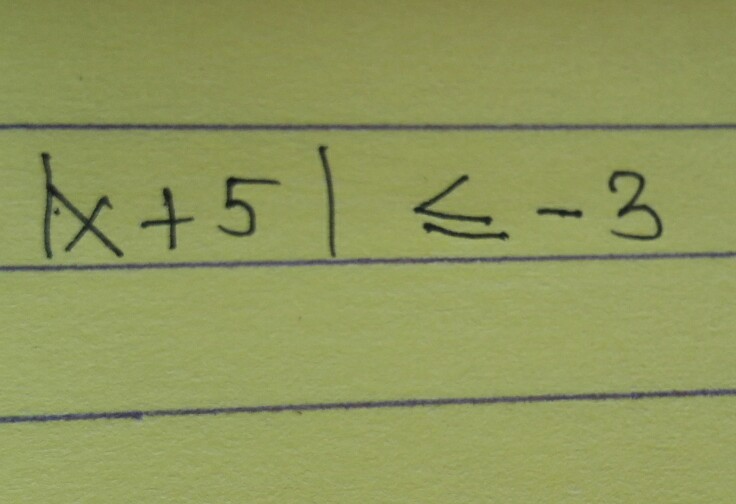 |x + 5| ≤ - 3